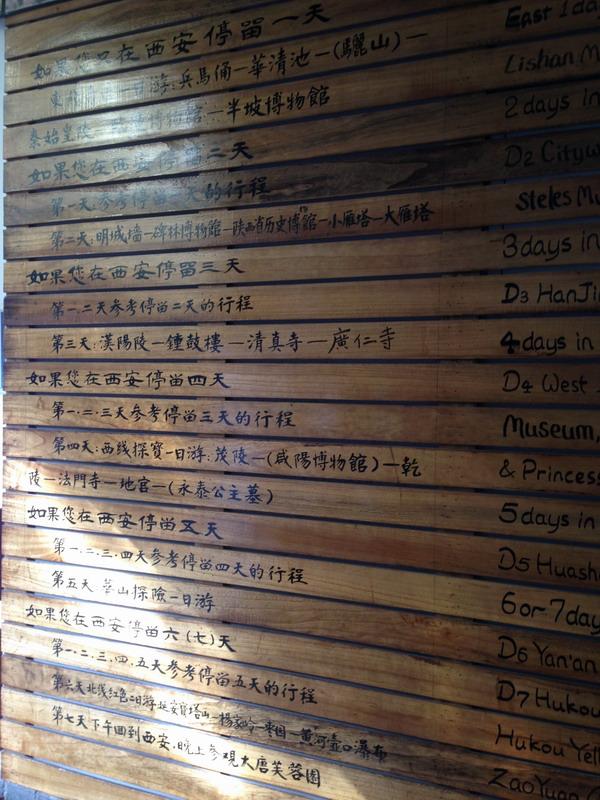 如果您只在西安停留一天
East 1da
东 日游:兵馬俑—華清池—(驪山)—
Lishan M
秦始皇陵 博物館—半坡博物館
2 days in
如果您在西安停留二天
D2 Cityw
第一天:参考停留一天的行程
Steles Mu
第二天:明城墙—碑林博物館—陕西省历史博館—小雁塔—大雁塔
3 days in
如果您在西安停留三天
D3 HanJi
第一.二天参考停留二天的行程
4 days in
第三天:漢陽陵—鍾鼓樓—清真寺—廣仁寺
D4 West
如果您在西安停留四天
Museum,
第一.二.三天参考停留三天的行程
& Princess
第四天:西线探寶一日游:茂陵—(咸陽博物館)—乾
5 days in
陵—法門寺—地宫—(永泰公主墓)
D5 Huash
如果您在西安停留五天
6 or 7 day
第一.二.三.四天参考停留四天的行程
D6 Yan'an
第五天:華山探險一日游
D7 Hukou
如果您在西安停留六(七)天
Hukou Yell
第一.二.三.四.五天参考停留五天的行程
ZaoYuan
第六天北线红色二日游:延安寳塔山—杨家岭—枣园—黄河壶口瀑布
第七天下午回到西安.晚上参观大唐芙蓉園